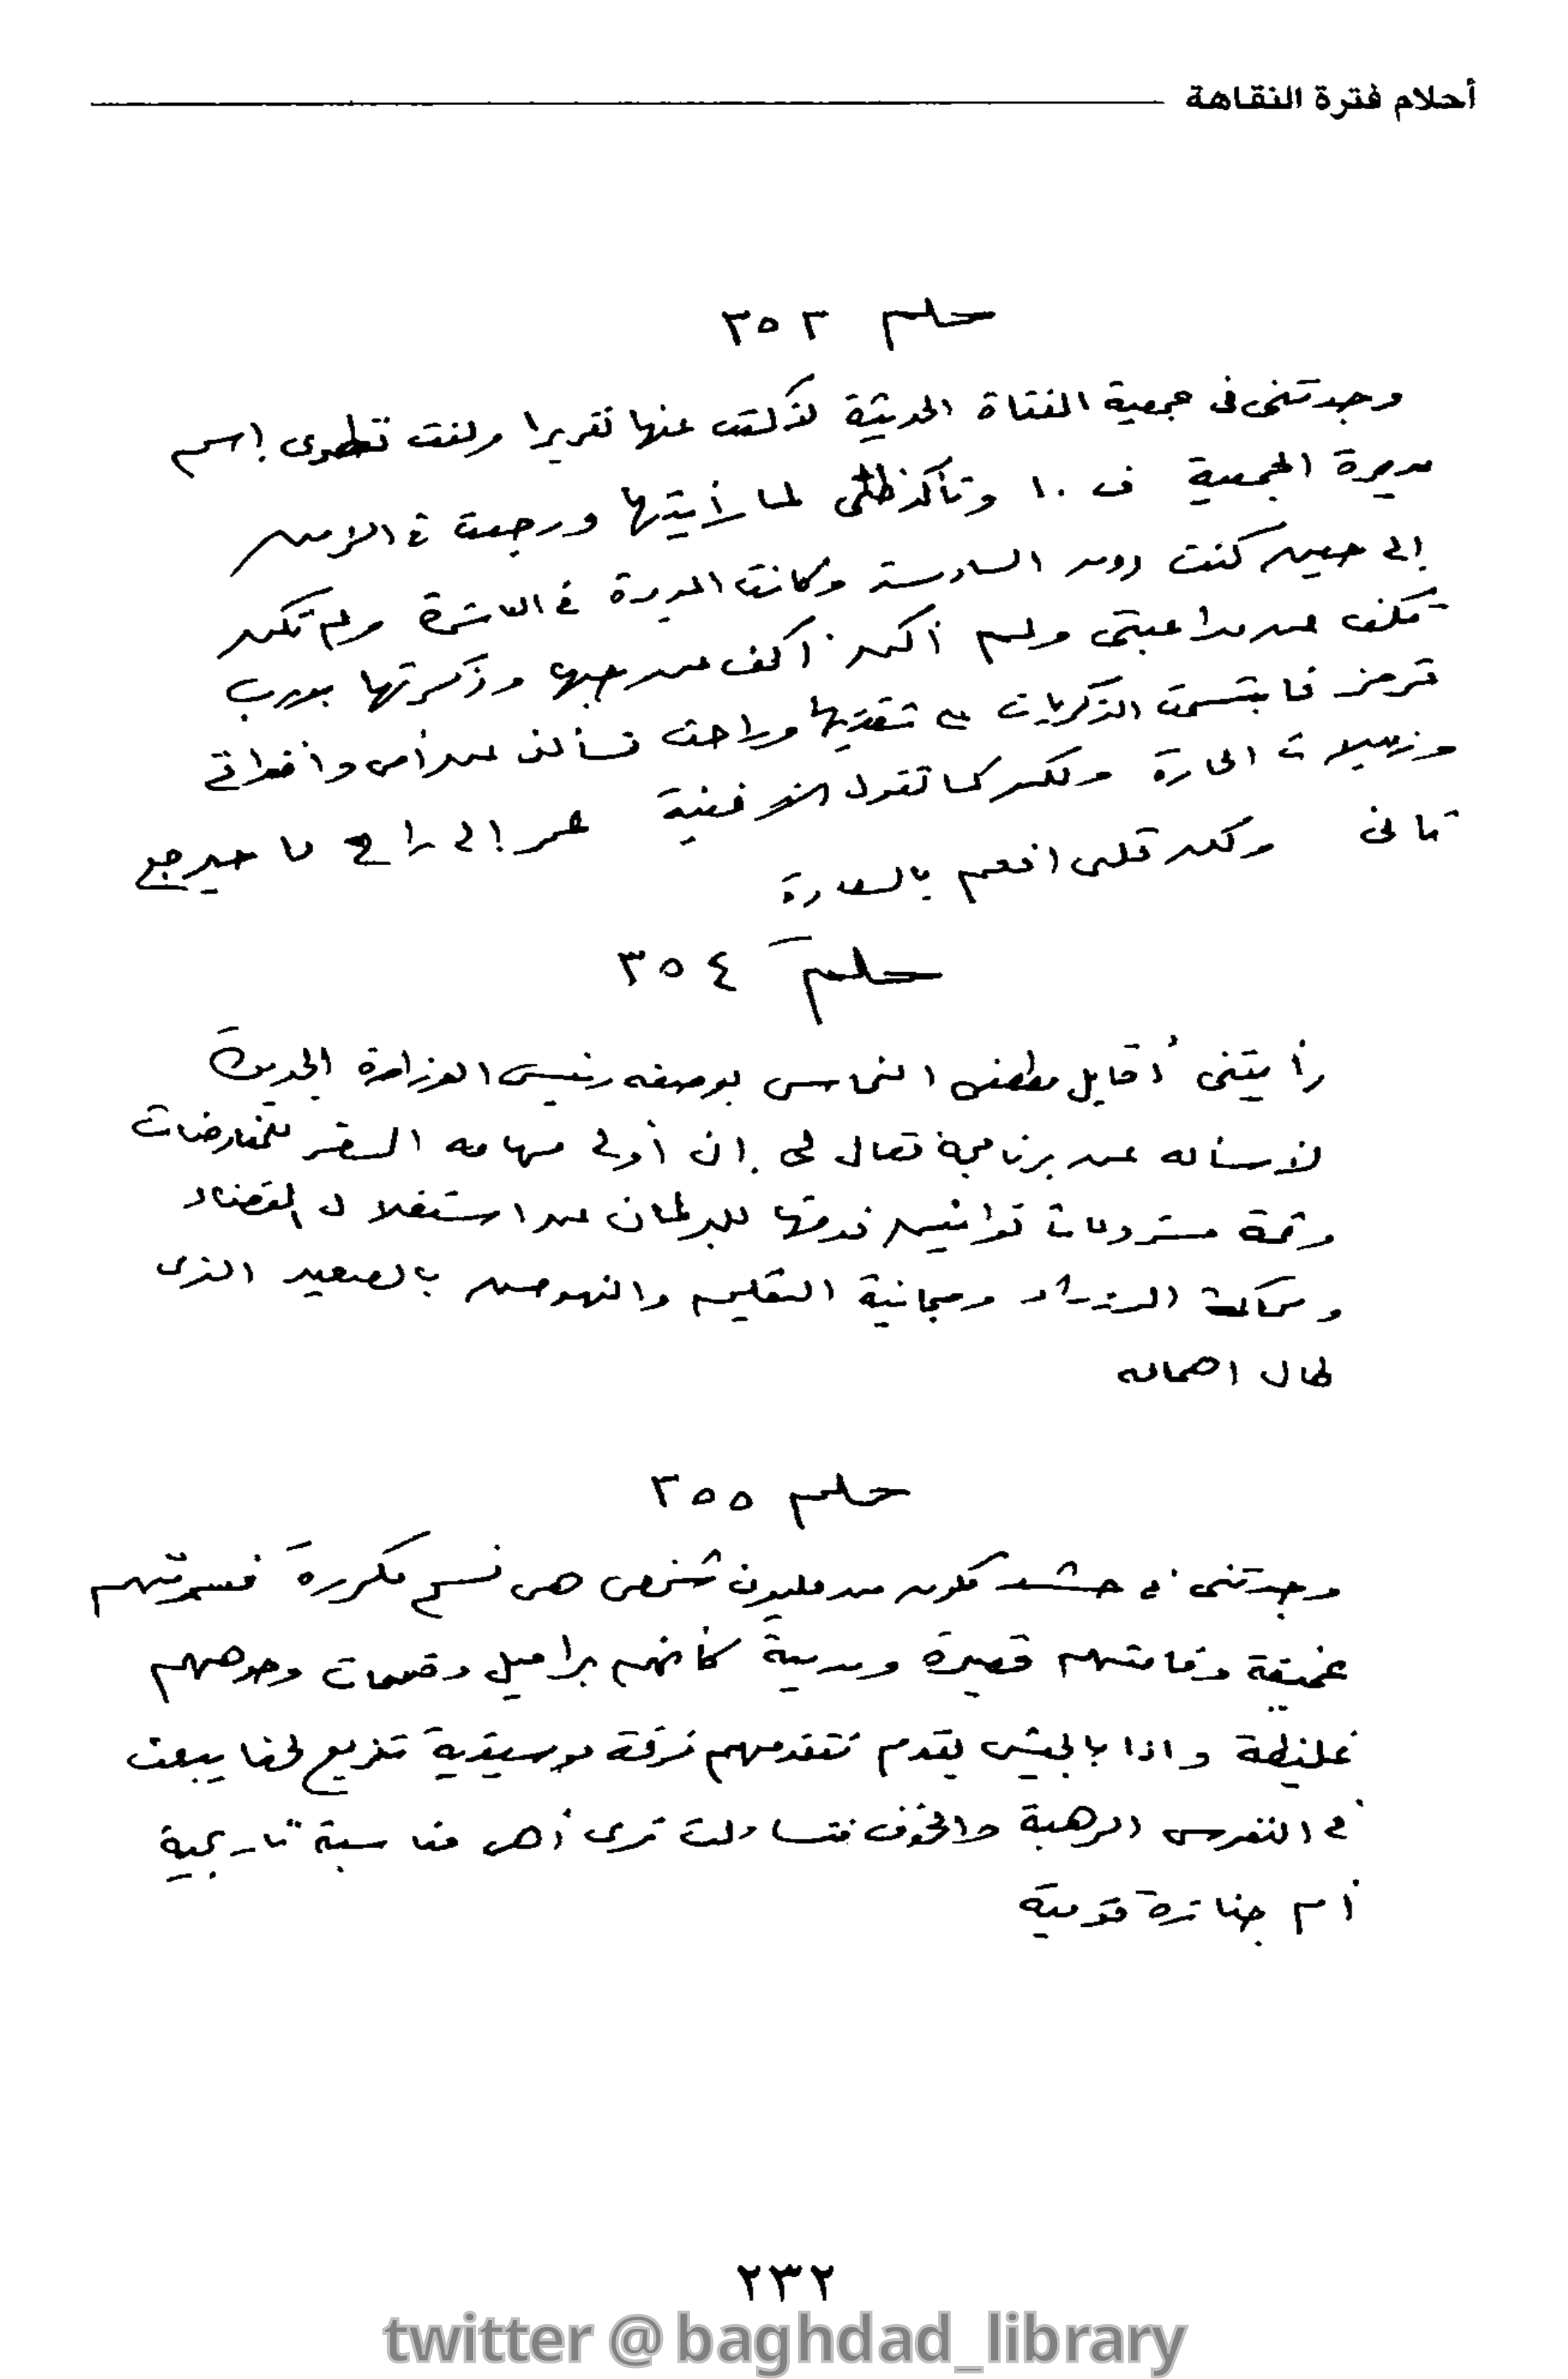 أحلام فترة النقاهة
حلم ٣٥٣
وجدتنى فى جمعية الفتاة الحديثة لأكتب عنها تقريرا ولفت نظرى اسم
مديرة الجمعية وتأكد ظنى لما رأيتها ورجعت فى الزمن
إلى حين كنت دون السادسة وكانت المديرة فى العاشرة ولم تكن
تكف عن مداعبتى ولم أكن أكف عن حبها وذكرتها بدرب
قرمز فابتسمت الذكريات على شفتيها وراحت تسألنى عن أمى وأخواتى
وزميلات الحارة ولكن كما تقول الأغنية عمر إلى راح ما حيرجع
تانى ولكن قلبى افعم بالسعادة
حلم ٣٥٤
رأيتنى أقابل مصطفى النحاس بوصفه رئيس الوزارة الجديدة
لأسأله عن برنامجه فقال لى إن أولى مهامه السفر للمفاوضات
وثمة مشروعات قوانين قدمتها للبرلمان عن استقلال القضاء
ومحاكمة الوزراء ومجانية التعليم والنهوض بالصعيد الذى
طال اهماله
حلم ٣٥٥
وجدتنى فى حشد مكون من مليون شخص هى نسخ مكررة فسمرتهم
عميقة وقامتهم قصيرة وبدينة كأنهم براميل وقسمات وجوههم
غليظة واذا بالجيش يتقدم تتقدمهم فرقة موسيقية تذيع لحنا يبعث
فى النفوس الرهبة والخوف فتساءلت ترى أهى مناسبة تاريخية
أم جنازة قومية
٢٣٢
twitter @baghdad_library